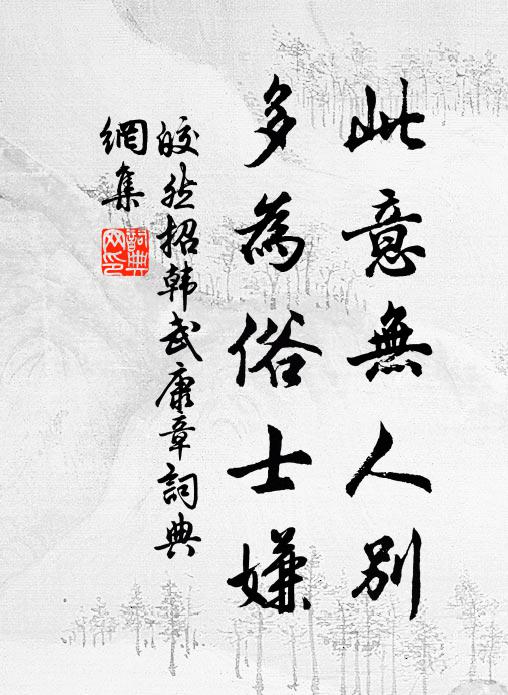 此意無人別
多為俗士嫌
皎然招韩武康章詞典
網集
詞典
网印